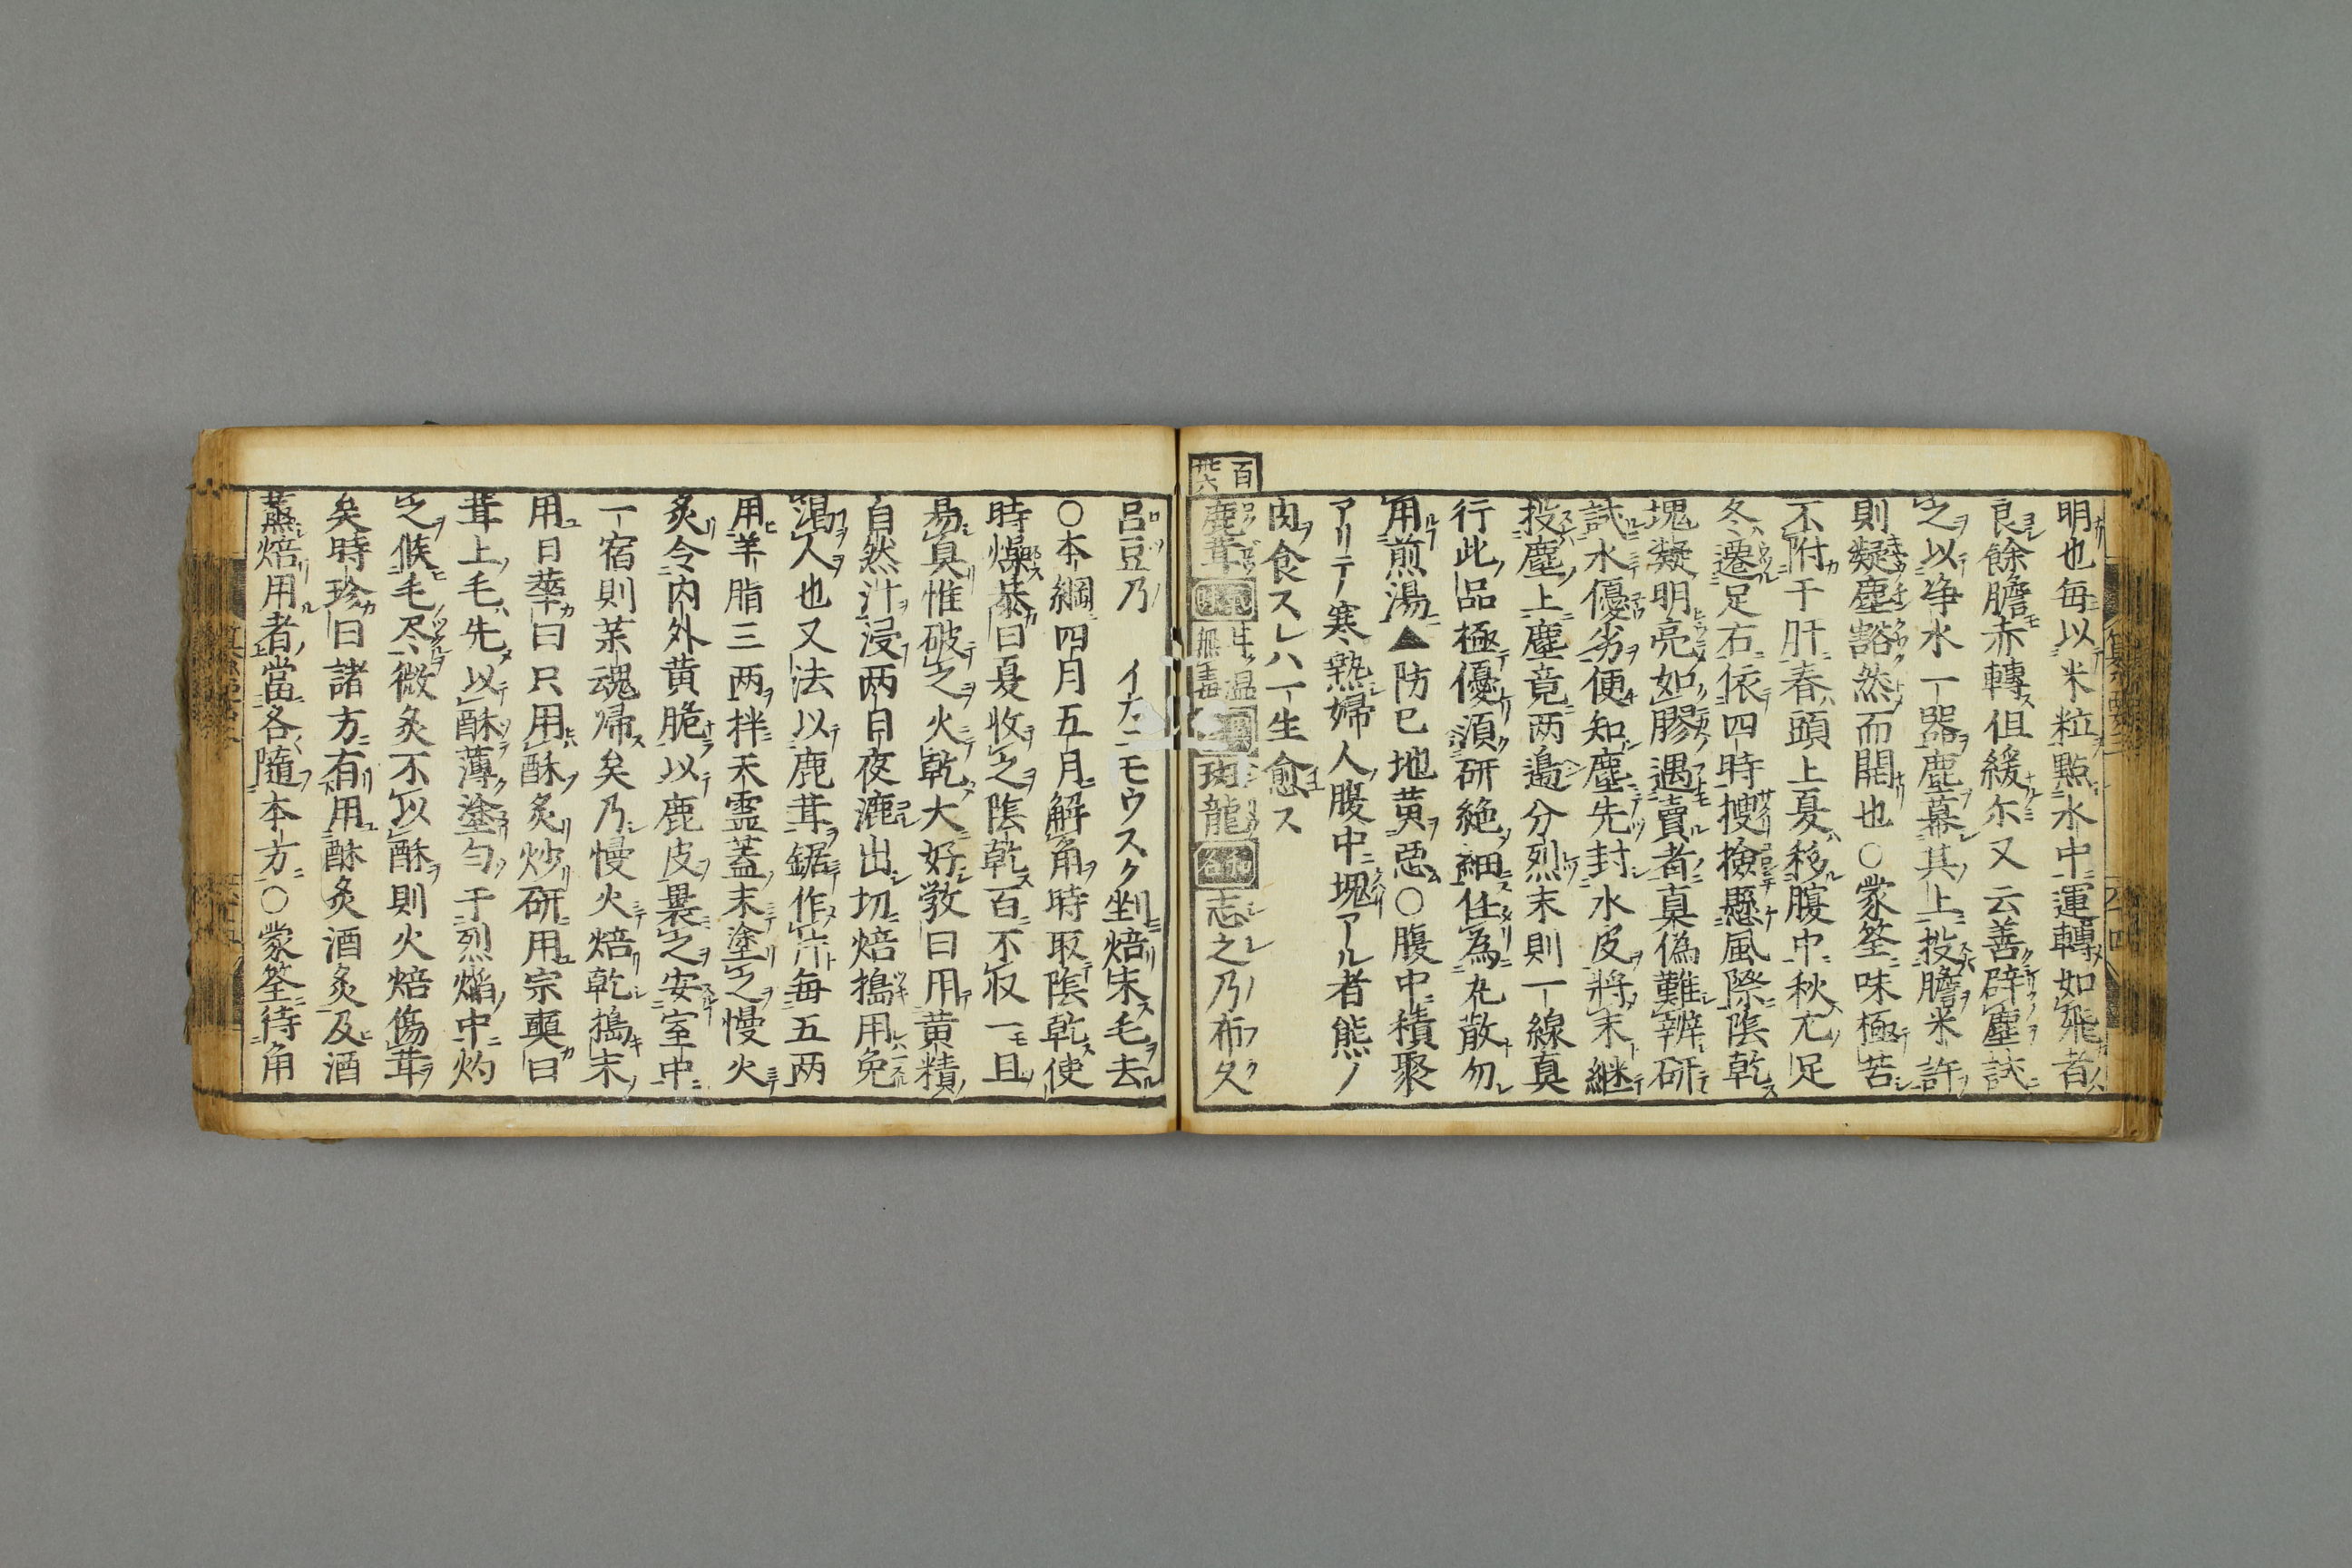 明也每以米粒點水中運轉如飛者
良餘膽赤轉但緩尓又云善辟塵試
之以净水一器塵幕其上投膽米許
則凝塵豁然而開也○蒙筌味極苦
不附于肝春頭上夏移腹中秋尤足
冬遷足右依四時搜撿懸風際陰乾
塊凝明亮如膠遇賣者真偽難辨研
試水優劣便知塵先封水皮將末継
投塵上塵竟两邉分烈末則一線真
行此品極優須研絶細任為丸散勿
用煎湯▲防已地黄惡○腹中積聚
アリテ寒熱婦人腹中塊アル者熊ノ
肉食スレハ一生愈ス
百
鹿茸
甘温
無毒
斑龍
志之乃布久
呂豆乃 イカニモウスク剉焙末毛去
○本綱四月五月解角時取陰乾使
時燥恭曰夏收之陰乾百不収一且
易臭惟破之火乾大好敩曰用黄精
自然汁浸两日夜漉出切焙搗用免
渇人也又法以鹿茸鋸作片每五两
用羊脂三两拌天霊蓋末塗之慢火
炙令内外黄脆以鹿皮褁之安室中
一宿則薬魂帰矣乃慢火焙乾搗末
用日華曰只用酥炙炒研用宗奭曰
茸上毛先以酥薄塗匀于烈焔中灼
之候毛尽微炙不以酥則火焙傷茸
矣時珍曰諸方有用酥炙酒炙及酒
蒸焙用者當各隨本方○蒙筌待角